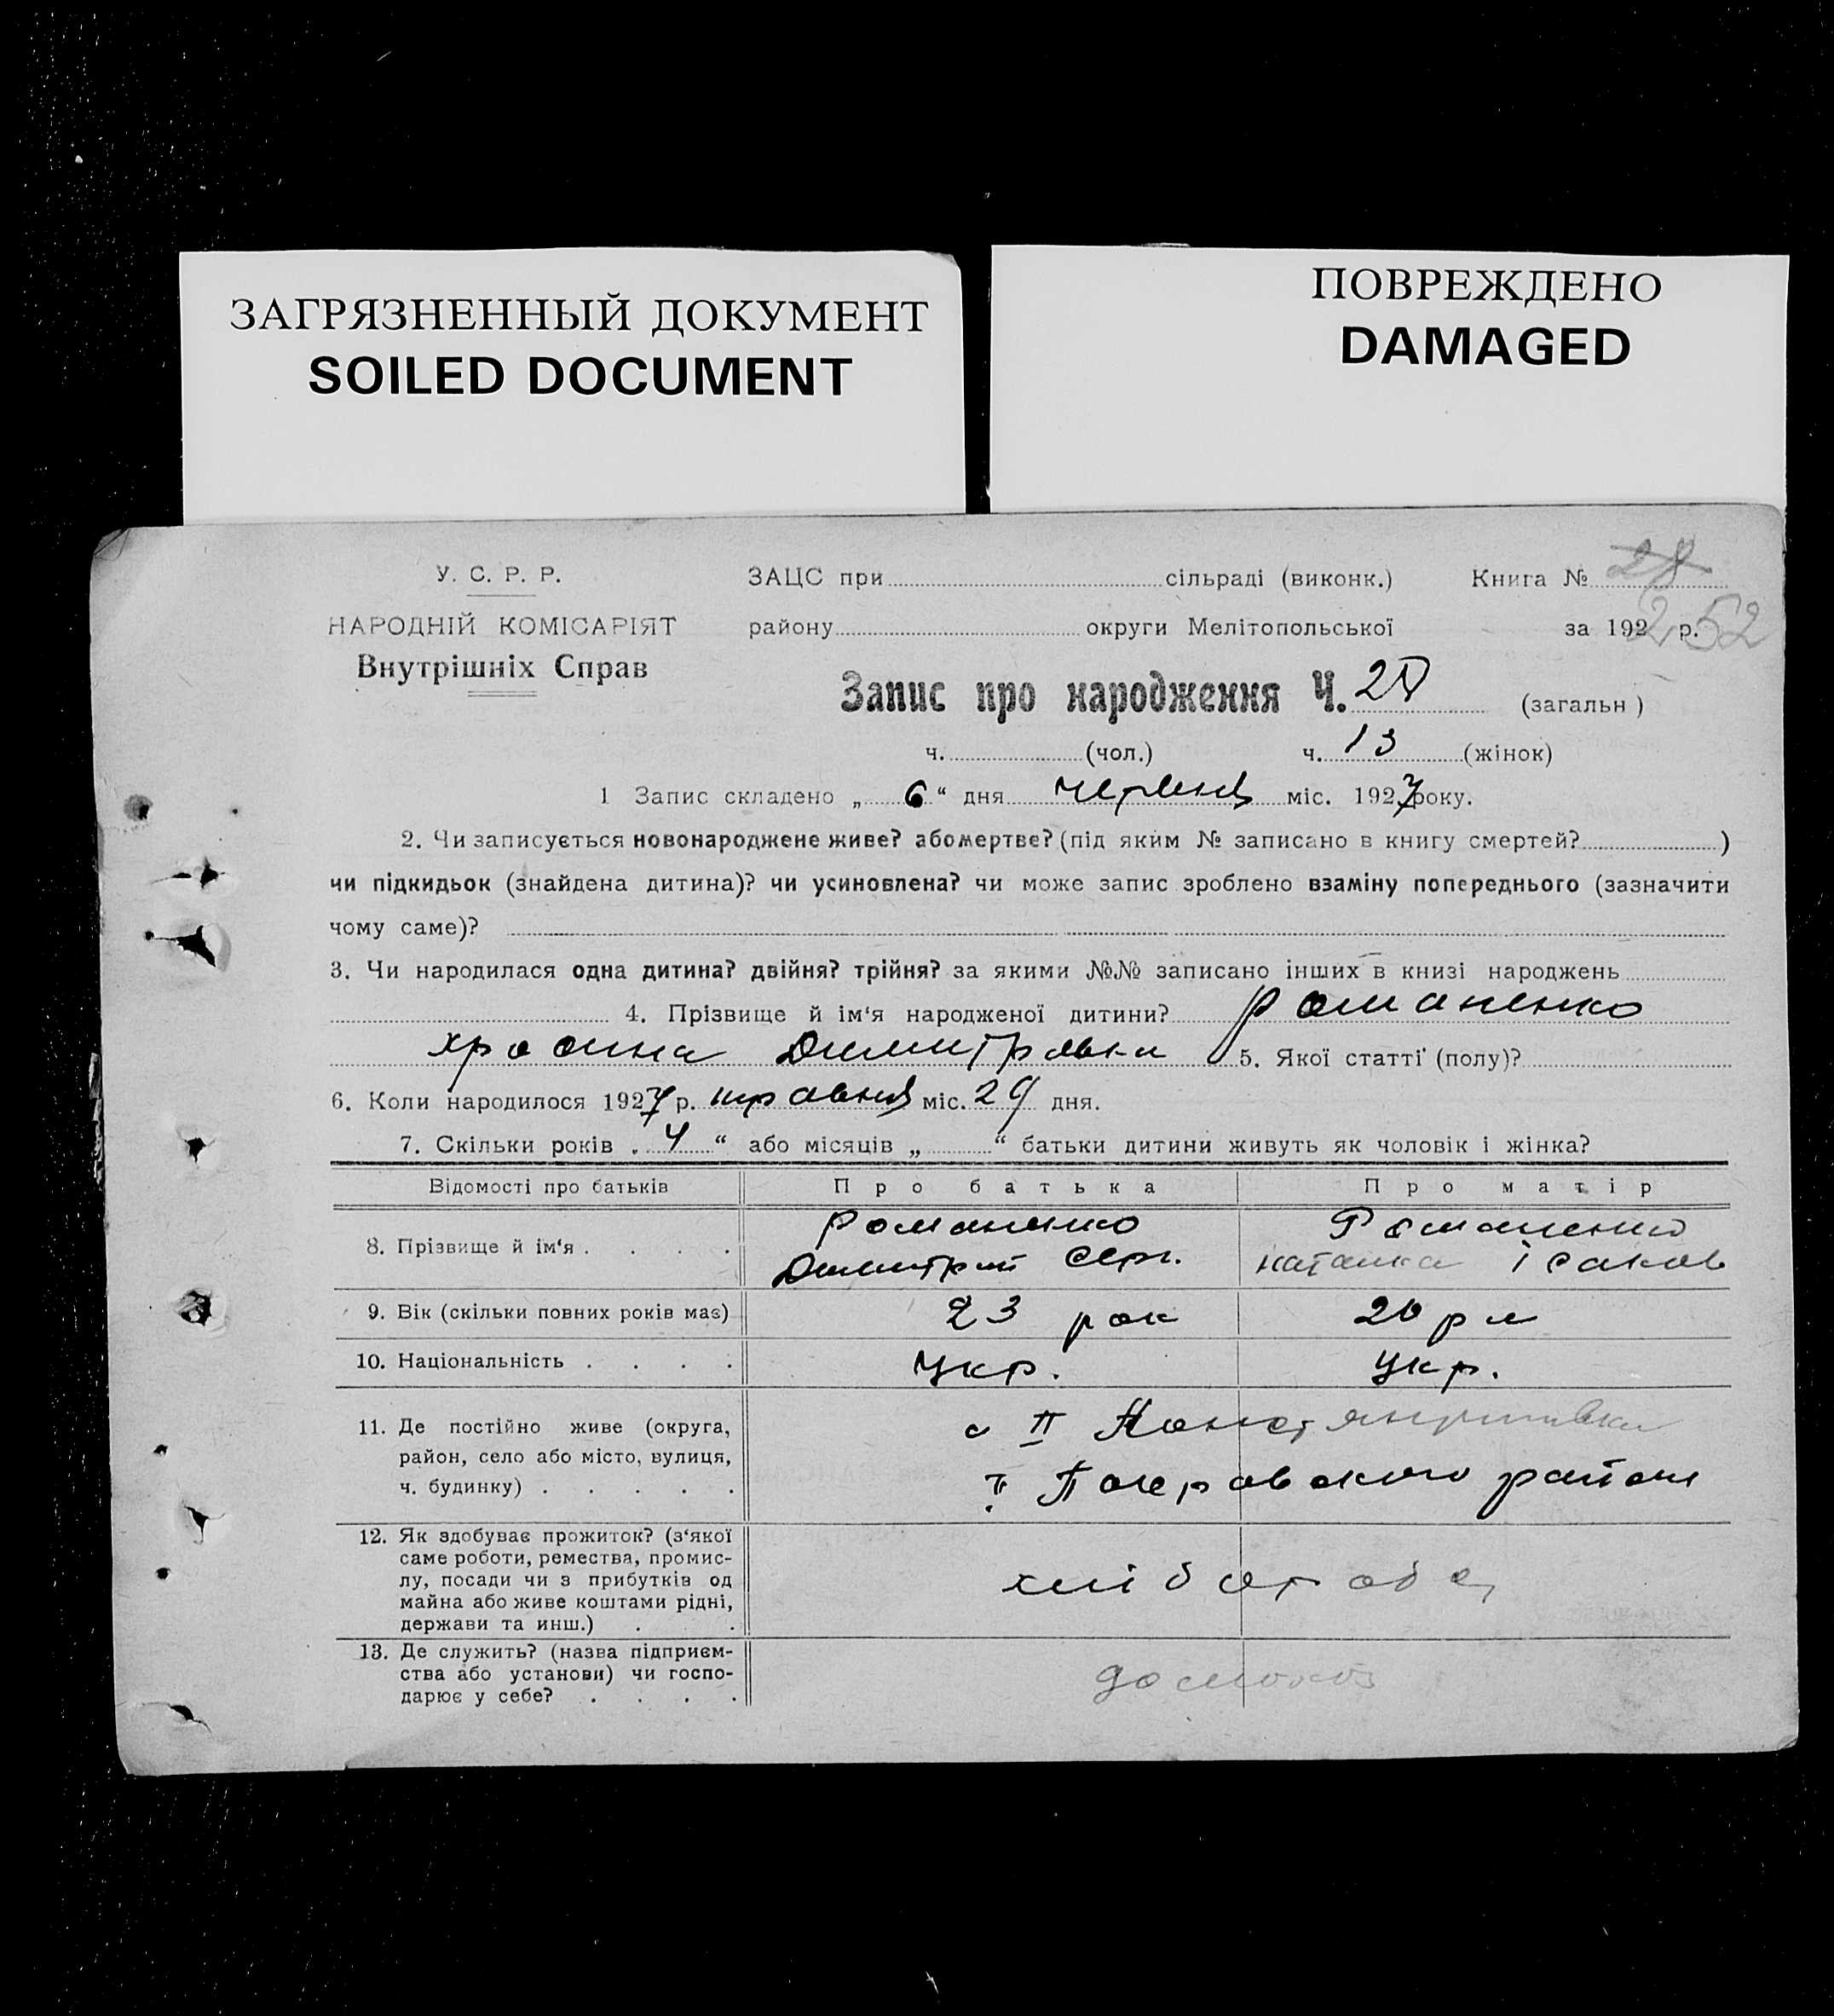 ЗАГРЯЗНЕННЫЙ ДОКУМЕНТ
SOILED DOCUMENT
ПОВРЕЖДЕНО
DAMAGED
У. С. Р. Р.
НАРОДНІЙ КОМІСАРІЯТ
Внутрішніх Справ
ЗАЦС при сільраді (виконк.) Книга № 28
району округи Мелітопольської за 192 р. 252
Запис про народження Ч. (загальн )
ч. (чол.) ч. 13 (жінок)
1 Запис складено „ 6 “ дня червня міс. 1927 року.
2. Чи записується новонароджене живе? або мертве? (під яким № записано в книгу смертей? )
чи підкидьок (знайдена дитина)? чи усиновлена? чи може запис зроблено взаміну попереднього (зазначити
чому саме)?
3. Чи народилася одна дитина? двійня? трійня? за якими №№ записано інших в книзі народжень
4. Прізвище й ім‘я народженої дитини? Романенко
5. Якої статті (полу)?
6. Коли народилося 1927 р. травня міс. 29 дня.
7. Скільки років „ 4 “ або місяців „ “ батьки дитини живуть як чоловік і жінка?
Відомості про батьків Про батька Про матір
8. Прізвище й ім‘я . . . . Романенко Романенко
Димитрий Серг. Наталка Ісаков
9. Вік (скільки повних років має) 23 рок 20
10. Національність . . . . Укр. Укр.
11. Де постійно живе (округа,
район, село або місто, вулиця,
ч. будинку) . . . . .
с II
Покровского района
12. Як здобуває прожиток? (з‘якої
саме роботи, ремества, промис-
лу, посади чи з прибутків од
майна або живе коштами рідні,
держави та инш.) . .
хлібороб
13. Де служить? (назва підприєм-
ства або установи) чи госпо-
дарює у себе? . . . .